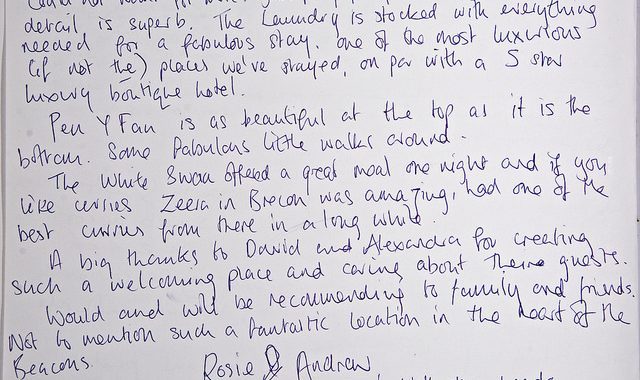 detail is superb. The Laundry is stocked with everything
needed for a fabulous stay. one of the most luxurious
(if not the) places we've stayed, on par with a 5 star
luxury boutique hotel.
Pen Y Fan is as beautiful at the top as it is the
bottom. Some fabulous little walks around.
The White Swan offered a great meal one night and if you
like curries Zeera in Brecon was amazing, had one of the
best curries from there in a long while.
A big thanks to David and Alexandra for creating
such a welcoming place and caring about there guests.
Would and will be recommending to family and friends.
Not to mention such a fantastic location in the heart of the
Beacons.
Rosie & Andrew